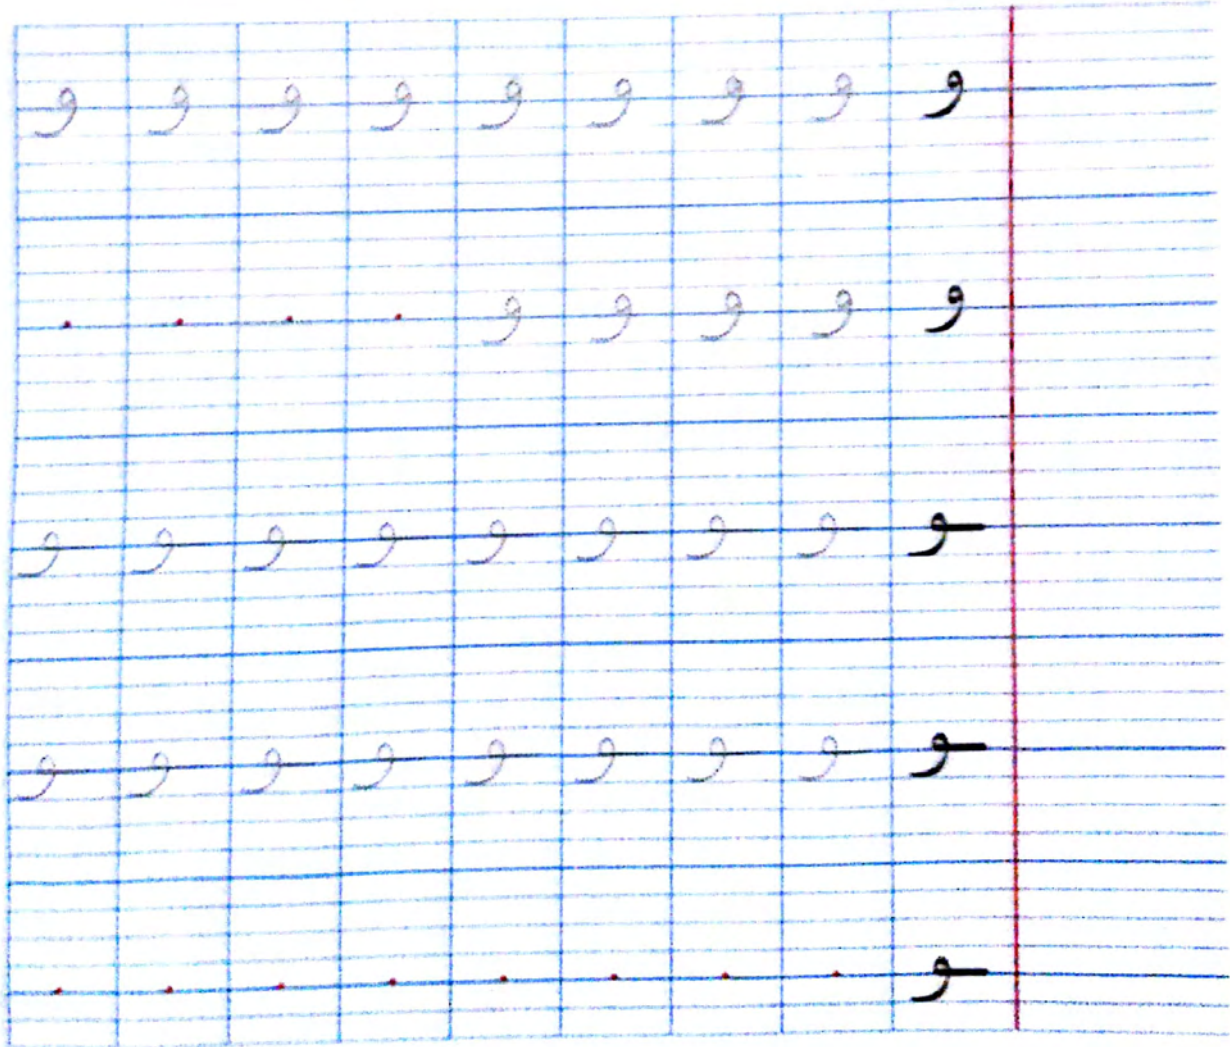 و و و و و و و و و
و و و و و . . . .
ـو ـو ـو ـو ـو ـو ـو ـو ـو
ـو ـو ـو ـو ـو ـو ـو ـو ـو
ـو . . . . . . . .